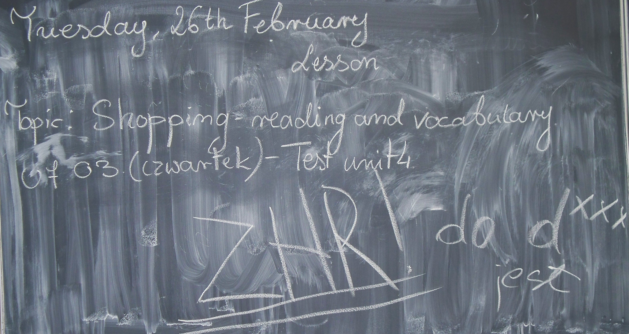 Tuesday, 26th February
Lesson
Topic: Shopping - reading and vocabulary
07 03 (czwartek) - Test unit 4
ZHR! - do dxxx
jest